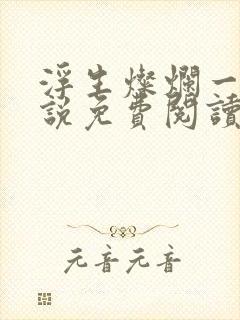 浮生燦爛一
說免費閱讀
元音元音